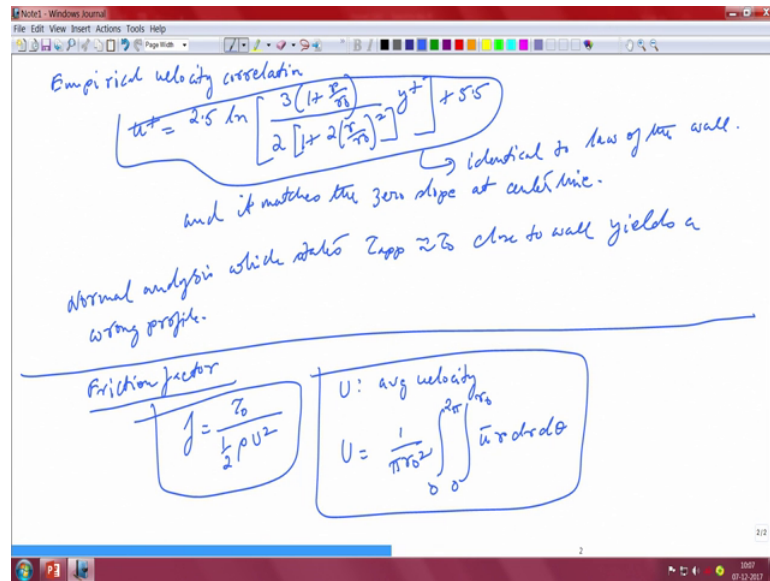 Note1 - Windows Journal
File Edit View Insert Actions Tools Help
Page Width
Empirical velocity correlation
u⁺ = 2.5 ln [ 3(1+ r/r₀) / 2[1+2(r/r₀)²] y⁺ ] + 5.5
↳ identical to law of the wall.
and it matches the zero slope at center line.
Normal analysis which states τapp ≈ τ₀ close to wall yields a
wrong profile.
Friction factor
f = τ₀ / (1/2 ρU²)
U: avg velocity
U = 1/(πr₀²) ∫₀^2π ∫₀^r₀ ū r dr dθ
2/2
2
10:07
07-12-2017